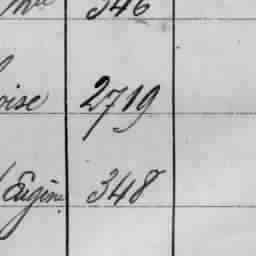 346
oise 2719
Eugène 348